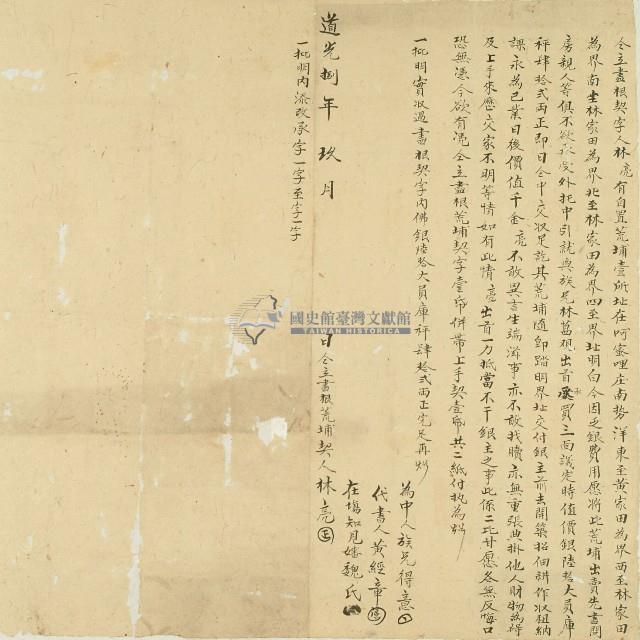 仝立盡根契字人林亮有自置荒埔壹所址在呵蜜哩庄南勢洋東至黃家田為界西至林家田
為界南至林家田為界北至林家田為界四至界址明白今因乏銀費用愿將此荒埔出賣先盡問
房親人等俱不欲承受外托中引就與族兄林萬硯出首承買三面議定時值價銀陸拾大員庫
秤肆拾弍両正即日仝中交收足訖其荒埔隨即踏明界址交付銀主前去開築招佃耕作收租納
課永為己業日後價值千金亮不敢異言生端滋事亦不敢找贖亦無重張典掛他人財物為碍
及上手來歷交家不明等情如有此情亮出首一力抵當不干銀主之事此係二比甘愿各無反悔口
恐無憑今欲有憑仝立盡根荒埔契字壹帋併帶上手契壹帋共二紙付执為炤
一批明實收過盡根契字內佛銀陸拾大員庫秤肆拾弍両正完足再炤
為中人族兄得意
代書人黃經章
在塲知見嬸魏氏
道光捌年玖月 日仝立盡根荒埔契人林亮
一批明內添改承字一字至字一字
國史館臺灣文獻館
TAIWAN HISTORICA